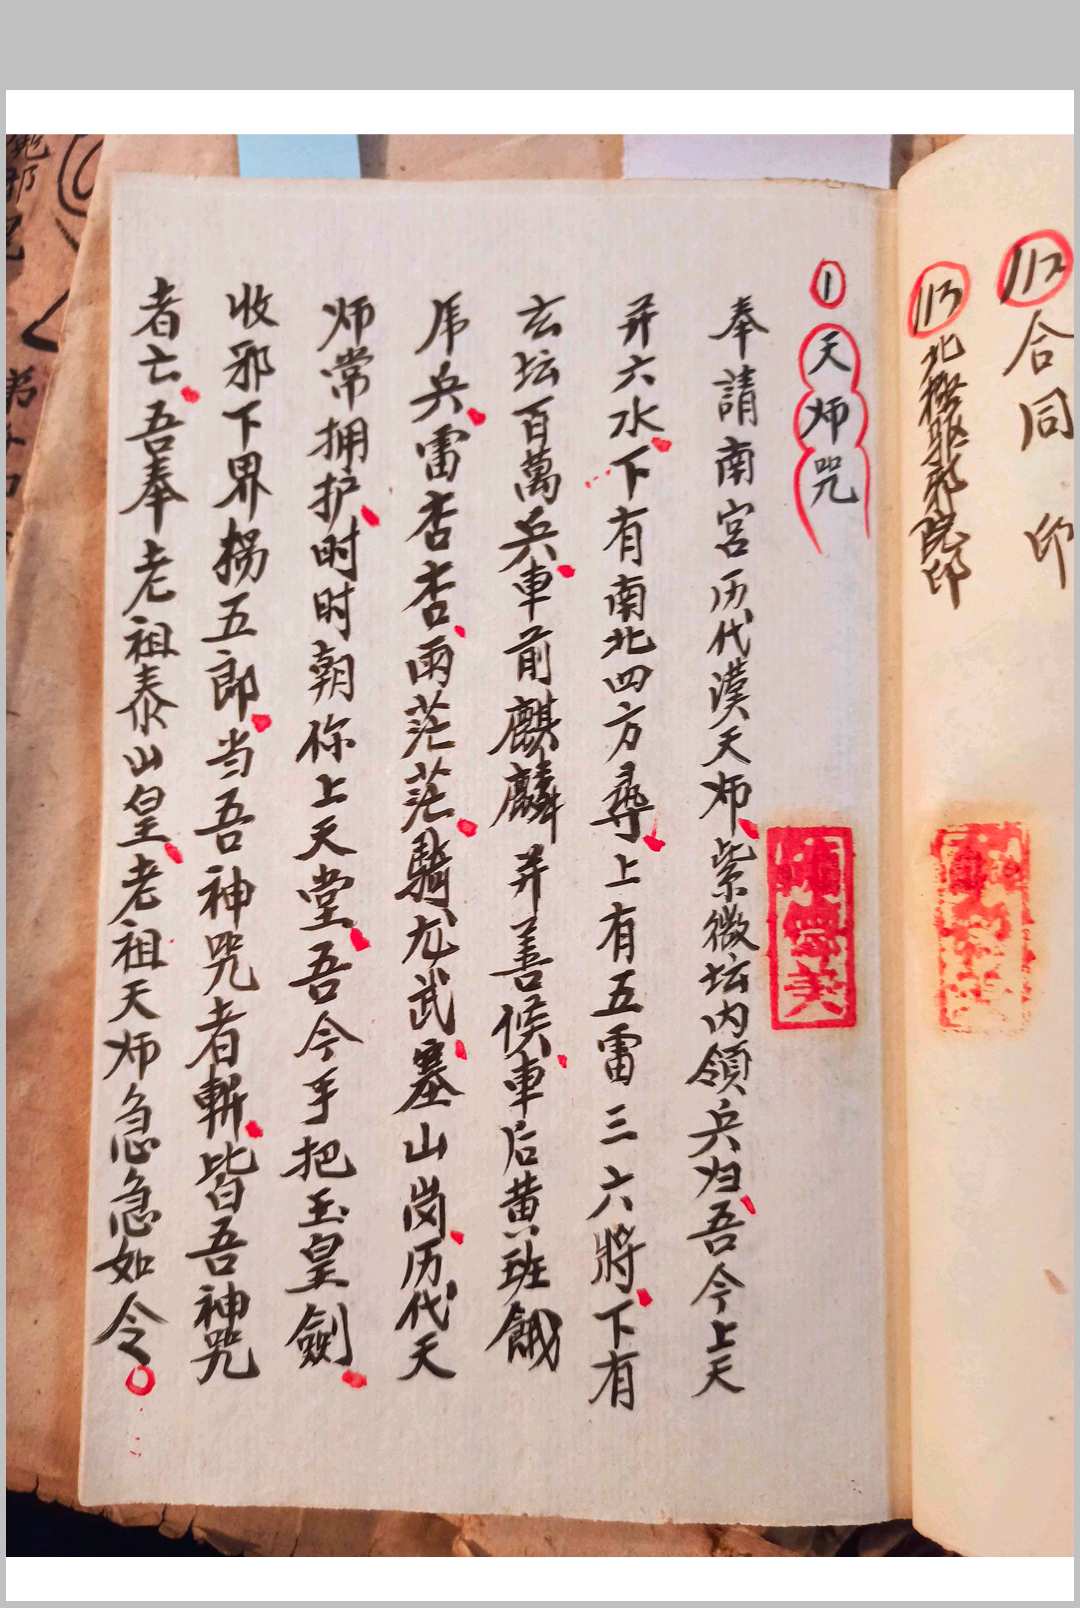 112 合同印
113 北極驱邪院印
1 天师咒
奉請南宮历代漢天师紫微坛内領兵归吾今上天
并六水下有南北四方尋上有五雷三六將下有
玄坛百萬兵車前麒麟并善候車后黄班餓
帍兵雷杳杳雨茫茫騎尨武塞山岗历代天
师常拥护时时朝你上天堂吾今手把玉皇劍
收邪下界拐五郎当吾神咒者斬皆吾神咒
者亡吾奉老祖泰山皇老祖天师急急如令